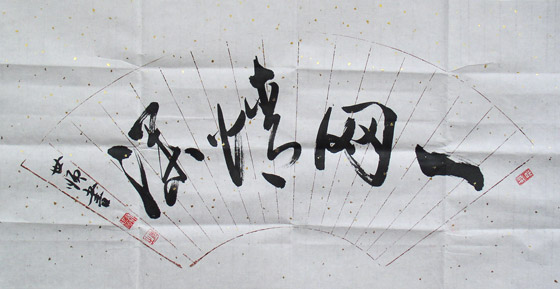 一网情深